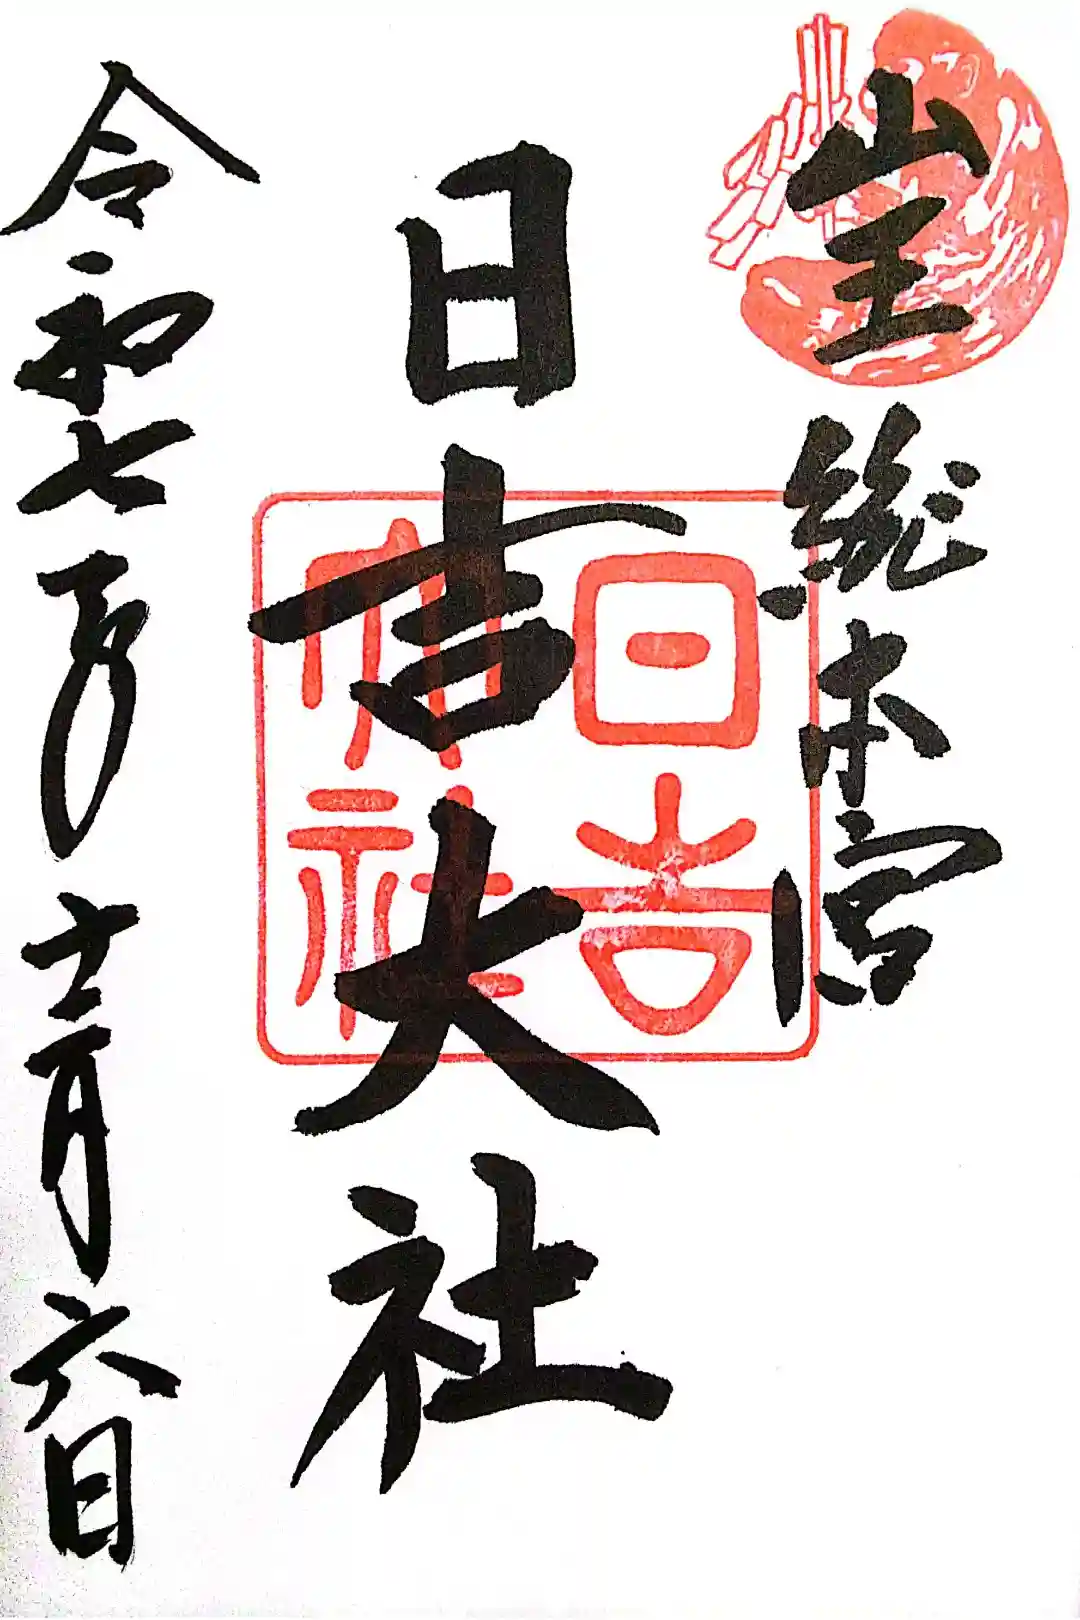 山王
総本宮
日吉大社
日吉
大社
令和七年十二月六日